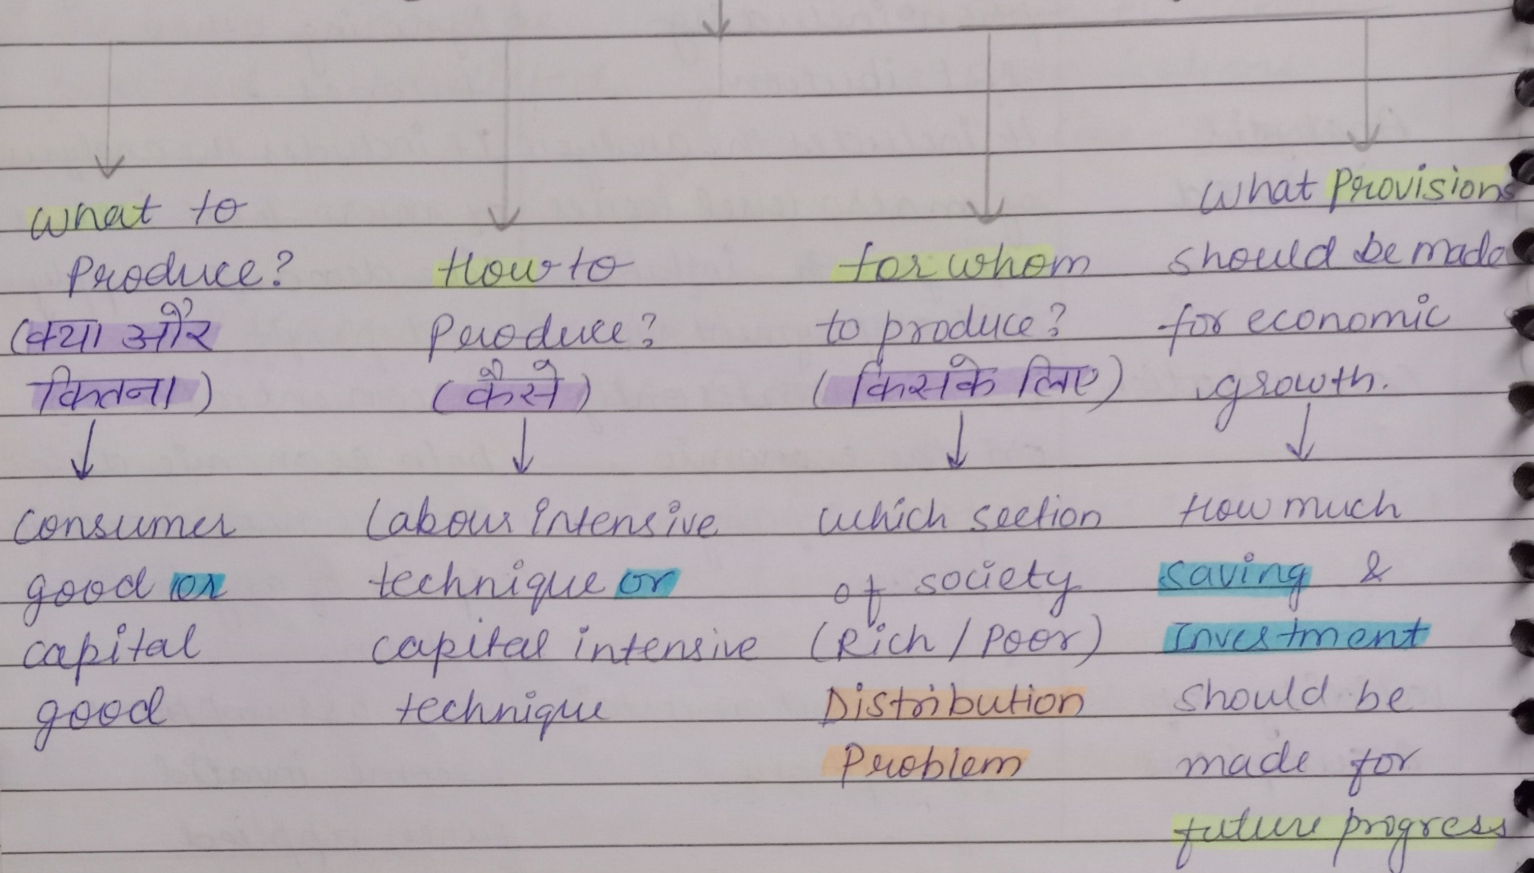 What to
Produce?
(क्या और
कितना)
↓
Consumer
good or
capital
good
How to
Produce?
(कैसे)
↓
Labour intensive
technique or
capital intensive
technique
for whom
to produce?
(किसके लिए)
↓
which section
of society
(Rich / Poor)
Distribution
Problem
What Provisions
should be made
for economic
growth.
↓
How much
saving &
Investment
should be
made for
future progress